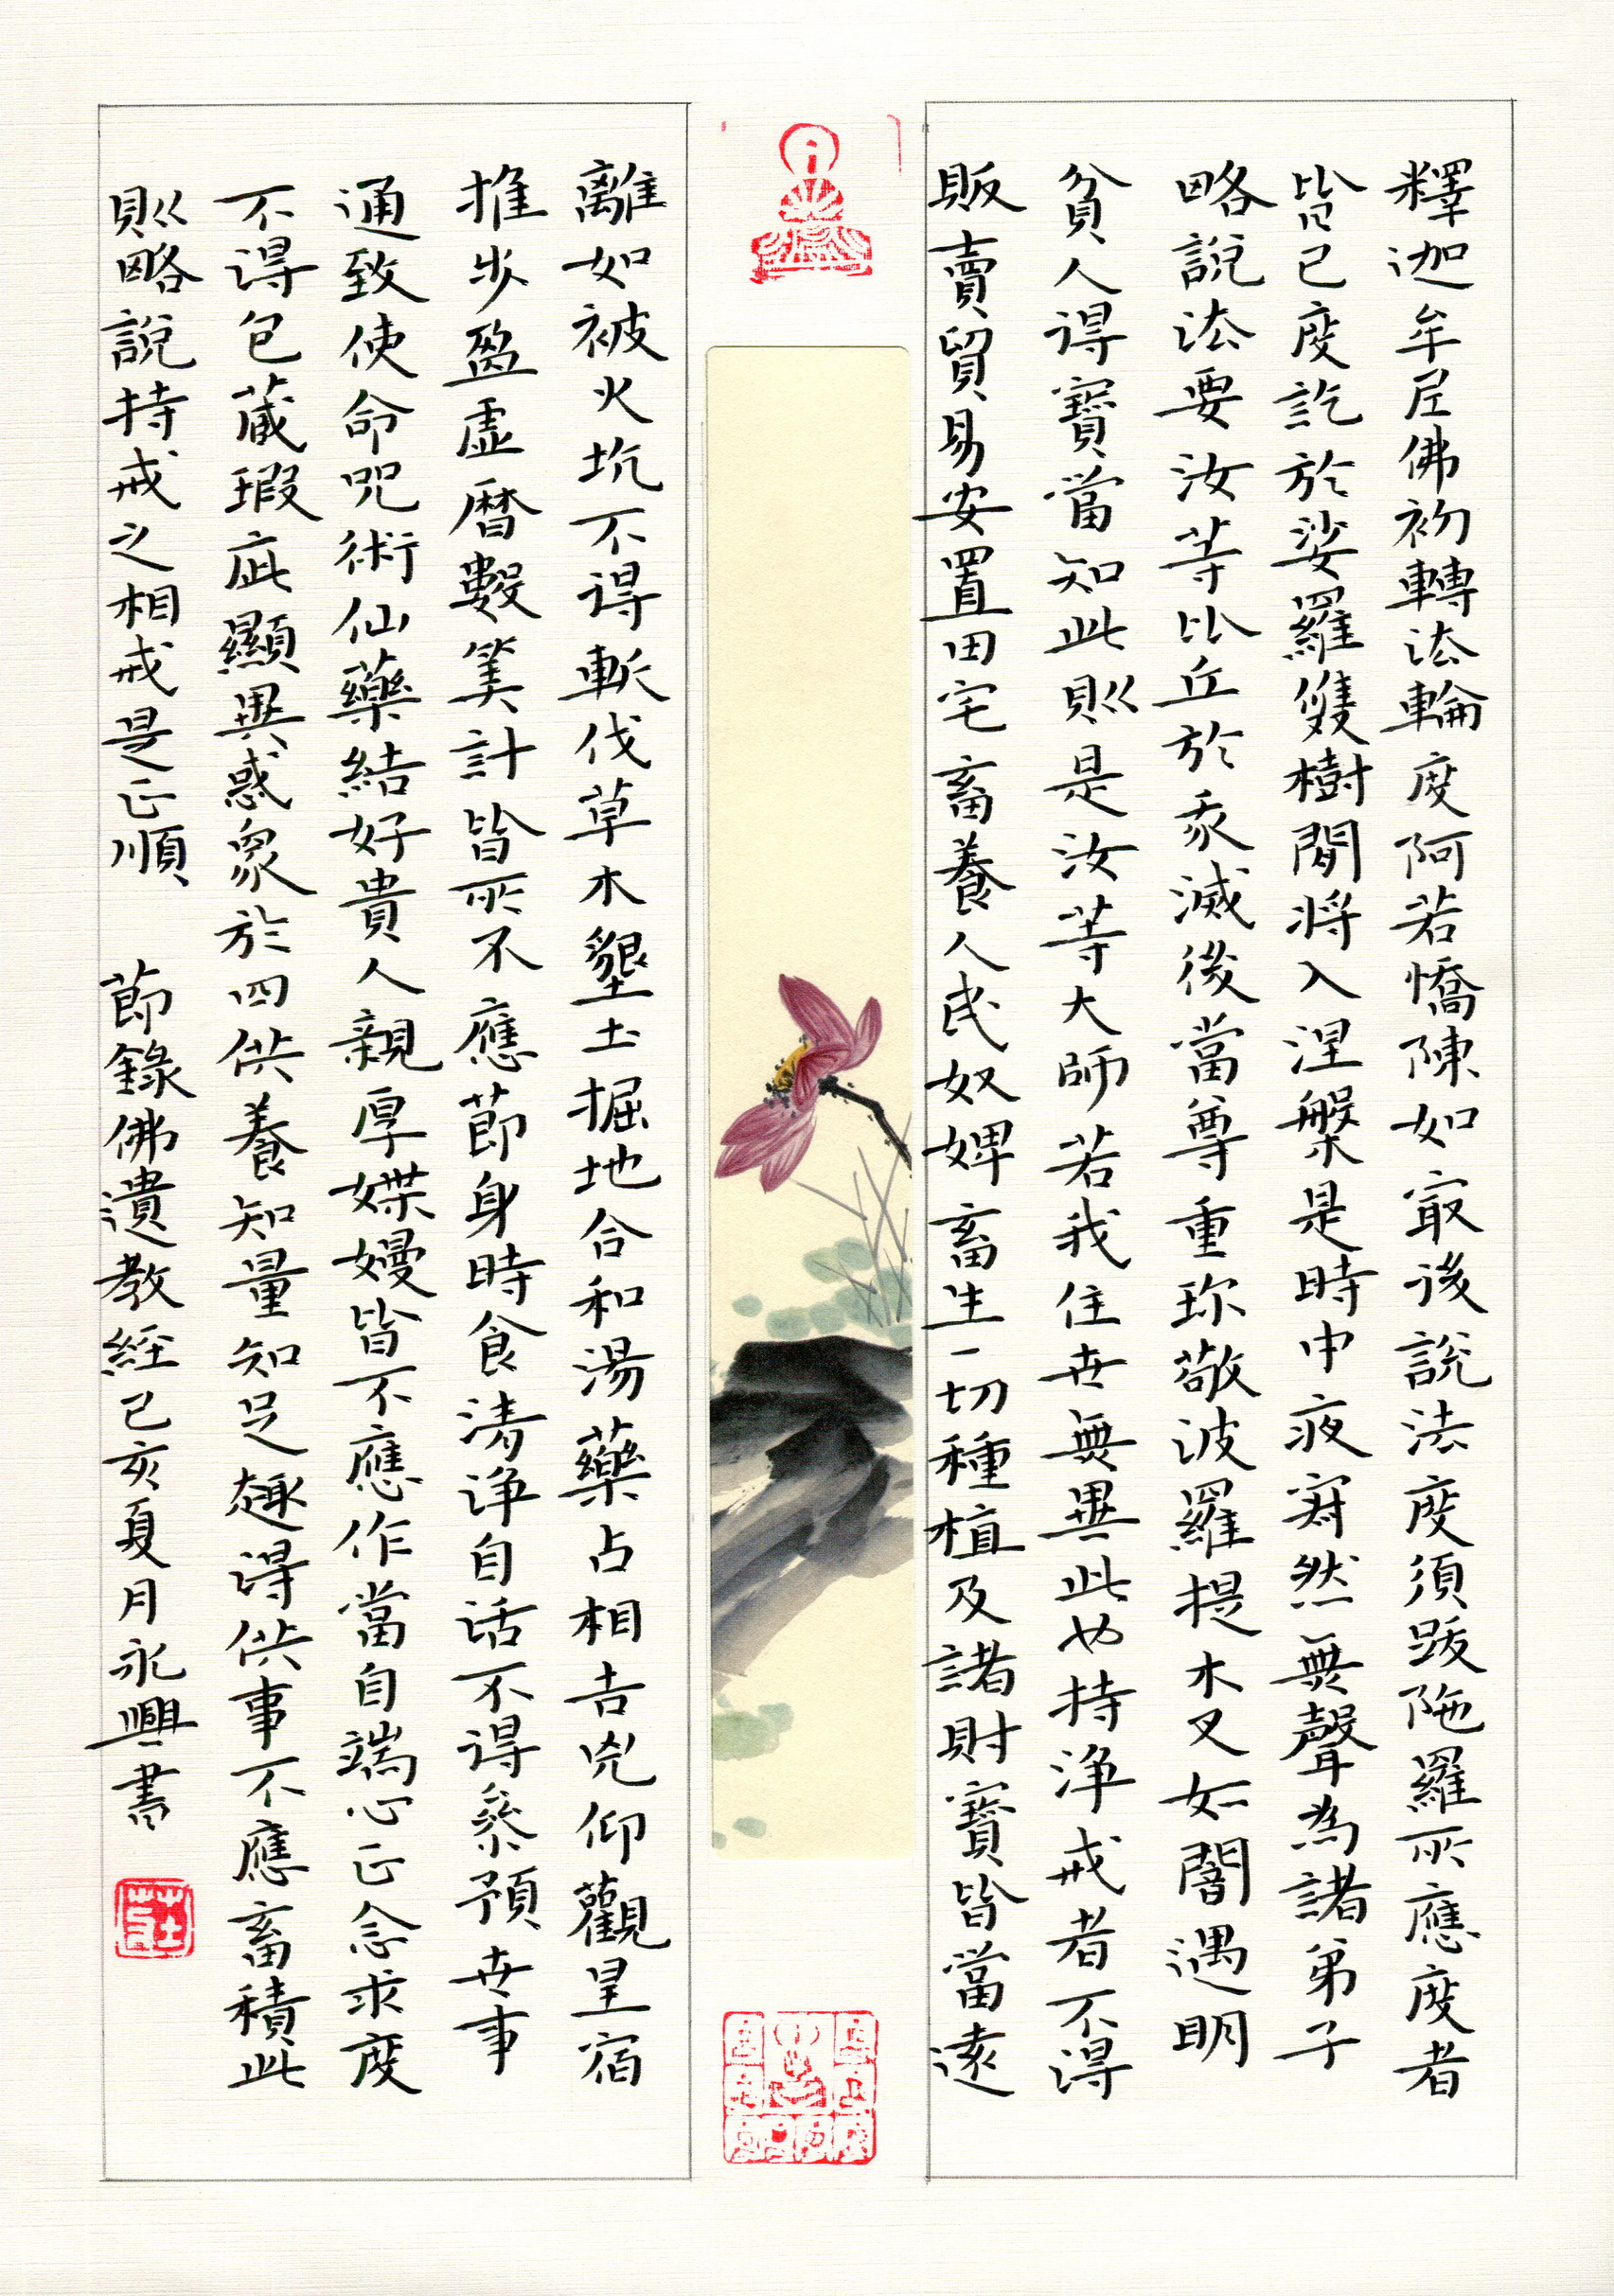 釋迦牟尼佛初轉法輪度阿若憍陳如最後說法度須跋陁羅所應度者
皆已度訖於娑羅雙樹間將入涅槃是時中夜寂然無聲為諸弟子
略說法要汝等比丘於我滅後當尊重珍敬波羅提木叉如闇遇明
貧人得寶當知此則是汝等大師若我住世無異此也持淨戒者不得
販賣貿易安置田宅畜養人民奴婢畜生一切種植及諸財寶皆當遠
離如被火坑不得斬伐草木墾土掘地合和湯藥占相吉凶仰觀星宿
推步盈虛曆數算計皆所不應節身時食清淨自活不得參預世事
通致使命咒術仙藥結好貴人親厚媟嫚皆不應作當自端心正念求度
不得包藏瑕疵顯異惑眾於四供養知量知足趣得供事不應畜積此
則略說持戒之相戒是正順 節錄佛遺教經己亥夏月永興書